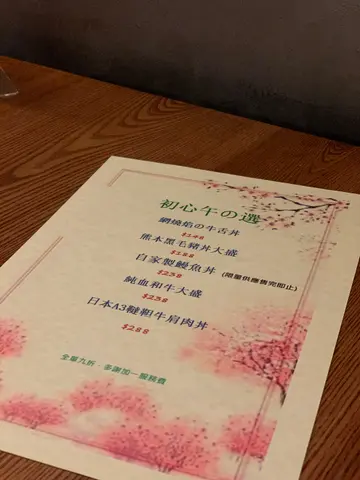 初心午の選
網燒焰の牛舌丼
$148
熊本黑毛豬丼大盛
$188
自家製鰻魚丼 (限量供應售完即止)
$238
純血和牛大盛
$238
日本A3韃靼牛肩肉丼
$288
全單九折，多謝加一服務費